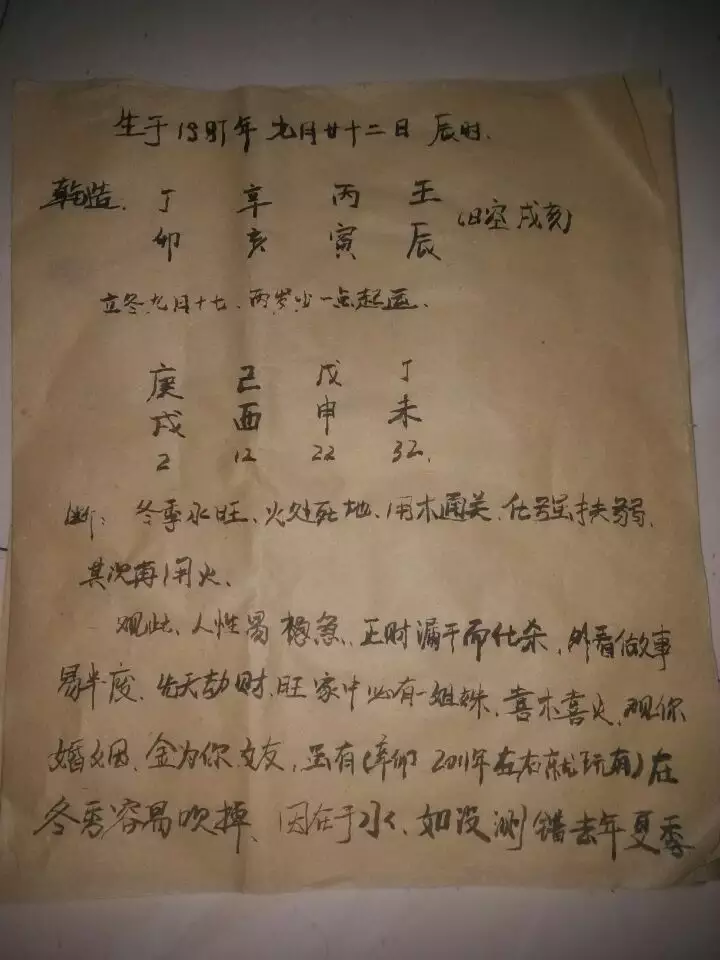 生于1987年 九月廿十二日 辰时.
乾造. 丁 辛 丙 壬
卯 亥 寅 辰 (日空戌亥)
立冬九月十七、两岁少一点起运.
庚 己 戊 丁
戌 酉 申 未
2 12 22 32.
断: 冬季水旺、火处死地、用木通关、化强扶弱、
其次再用火、
观此、人性易 急、正财 干而化杀、外看做事
易半废、先天劫财、旺家中必有一姐妹、喜木喜火、观你
婚姻、金为你女友、 有(辛卯 2011年左右就玩有)在
冬季容易吹掉、因在于水、如没测错去年夏季